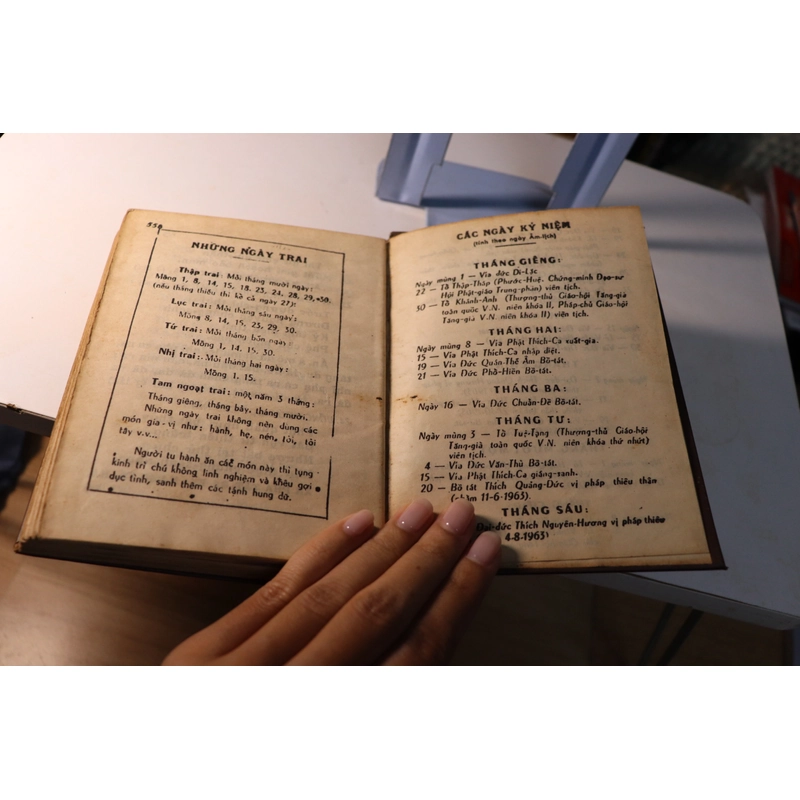 550
NHỮNG NGÀY TRAI
Thập trai: Mỗi tháng mười ngày:
Mồng 1, 8, 14, 15, 18, 23, 24, 28, 29, 30.
(nếu tháng thiếu thì kể cả ngày 27).
Lục trai: Mỗi tháng sáu ngày:
Mồng 8, 14, 15, 23, 29, 30.
Tứ trai: Mỗi tháng bốn ngày:
Mồng 1, 14, 15, 30.
Nhị trai: Mỗi tháng hai ngày:
Mồng 1, 15.
Tam ngoạt trai: một năm 3 tháng:
Tháng giêng, tháng bảy, tháng mười.
Những ngày trai không nên dùng các
món gia-vị như: hành, hẹ, nén, tỏi, tỏi
tây v.v...
Người tu hành ăn các món này thì tụng
kinh trì chú không linh nghiệm và khêu gợi
dục tình, sanh thêm các tánh hung dữ.
CÁC NGÀY KỶ NIỆM
(tính theo ngày Âm-lịch)
THÁNG GIÊNG:
Ngày mùng 1 — Vía đức Di-Lặc
22 — Tổ Thập-Tháp (Phước-Huệ, Chứng-minh Đạo-sư
Hội Phật-giáo Trung-phần) viên tịch.
30 — Tổ Khánh-Anh (Thượng-thủ Giáo-hội Tăng-già
toàn quốc V.N. niên khóa II, Pháp-chủ Giáo-hội
Tăng-già V.N. niên khóa II) viên tịch.
THÁNG HAI:
Ngày mùng 8 — Vía Phật Thích-Ca xuất-gia.
15 — Vía Phật Thích-Ca nhập diệt.
19 — Vía Đức Quán-Thế Âm Bồ-tát.
21 — Vía Đức Phổ-Hiền Bồ-tát.
THÁNG BA:
Ngày 16 — Vía Đức Chuẩn-Đề Bồ-tát.
THÁNG TƯ:
Ngày mùng 3 — Tổ Tuệ-Tạng (Thượng-thủ Giáo-hội
Tăng-già toàn quốc V.N. niên khóa thứ nhứt)
viên tịch.
4 — Vía Đức Văn-Thù Bồ-tát.
15 — Vía Phật Thích-Ca giáng-sanh.
20 — Bồ tát Thích Quảng-Đức vị pháp thiêu thân
(nhằm 11-6-1963).
THÁNG SÁU:
Đại-đức Thích Nguyên-Hương vị pháp thiêu
4-8-1963)